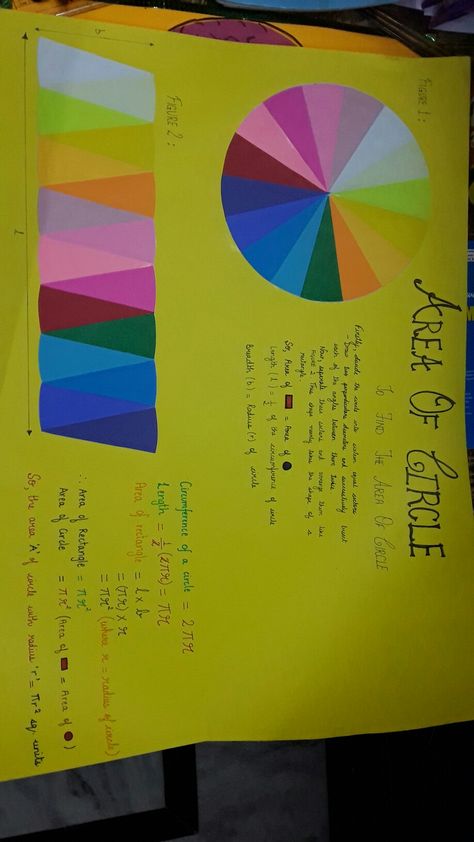 AREA OF CIRCLE
TO FIND THE AREA OF CIRCLE
FIGURE 1:
Firstly, divide the circle into sixteen equal sectors
- Draw two perpendicular diameters and successively bisect
each of the angles between these lines
Now, separate these sectors and arrange them like
Figure 2. This shape nearly takes the shape of a
rectangle.
So, Area of = Area of
Length (l) = 1/2 of the circumference of circle
Breadth (b) = Radius (r) of circle
FIGURE 2:
b
l
Circumference of a circle = 2πr
Length = 1/2 (2πr) = πr
Area of rectangle = l x b
= (πr) x r
= πr² (where r = radius of circle)
∴ Area of Rectangle = πr²
Area of Circle = πr² (Area of = Area of )
So, the area 'A' of circle with radius 'r' = πr² sq. units